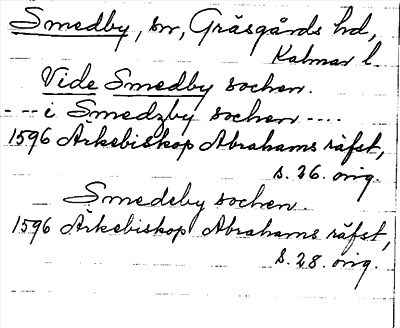 Smedby, sn, Gräsgårds hd,
Kalmar l.
Vide Smedby sochen.
--- i Smedzby sochen ----
1596 Ärkebiskop Abrahams räfst,
s. 26. orig.
_ Smedeby sochen.
1596 Ärkebiskop Abrahams räfst,
s. 28. orig.